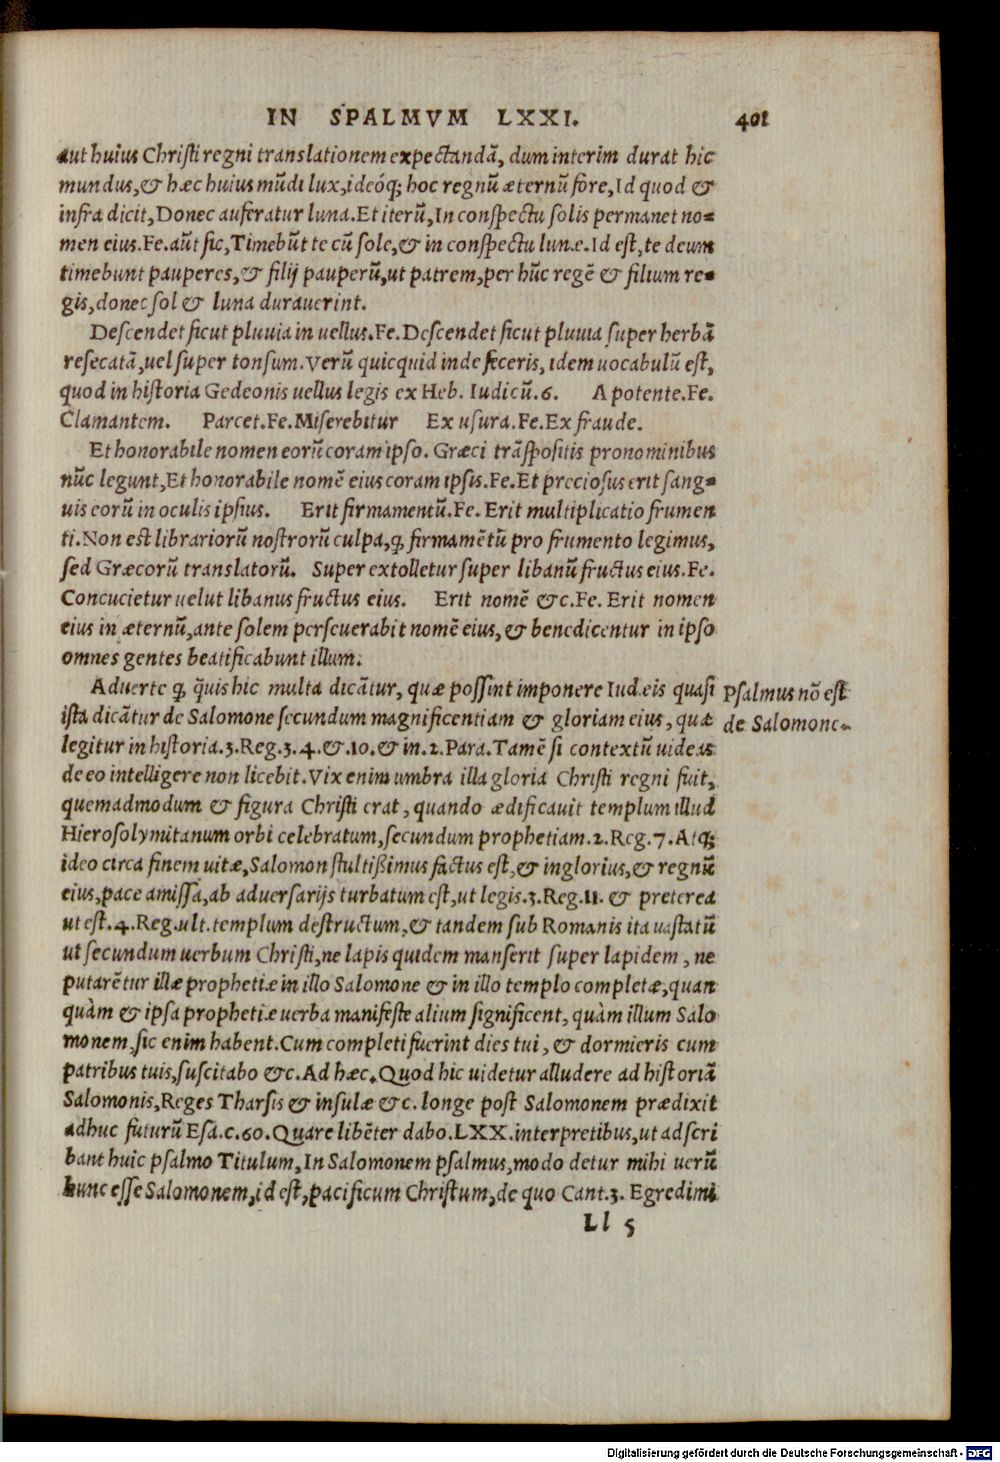 IN SPALMVM LXXI. 401
aut huius Christi regni translationem expectandā, dum interim durat hic
mundus, & hæc huius mūdi lux, ideóq; hoc regnū æternū fore, Id quod &
infra dicit, Donec auferatur luna. Et iterū, In conspectu solis permanet no=
men eius. Fe. aūt sic, Timebūt te cū sole, & in conspectu lunæ. Id est, te deum
timebunt pauperes, & filij pauperū, ut patrem, per hūc regē & filium re=
gis, donec sol & luna durauerint.
Descendet sicut pluuia in uellus. Fe. Descendet sicut pluuia super herbā
resecatā, uel super tonsum. Verū quicquid inde feceris, idem uocabulū est,
quod in historia Gedeonis uellus legis ex Heb. Iudicū. 6. A potente. Fe.
Clamantem. Parcet. Fe. Miserebitur Ex usura. Fe. Ex fraude.
Et honorabile nomen eorū coram ipso. Græci trāspositis pronominibus
nūc legunt, Et honorabile nomē eius coram ipsis. Fe. Et preciosus erit sang=
uis eorū in oculis ipsius. Erit firmamentū. Fe. Erit multiplicatio frumen
ti. Non est librariorū nostrorū culpa, q̈ firmamētū pro frumento legimus,
sed Græcorū translatorū. Super extolletur super libanū fructus eius. Fe.
Concucietur uelut libanus fructus eius. Erit nomē &c. Fe. Erit nomen
eius in æternū, ante solem perseuerabit nomē eius, & benedicentur in ipso
omnes gentes beatificabunt illum.
Aduerte q̈ q̄uis hic multa dicātur, quæ possint imponere Iudæis quasi
ista dicātur de Salomone secundum magnificentiam & gloriam eius, quæ
legitur in historia. 3. Reg. 3. 4. &. 10. & in. 2. Para. Tamē si contextū uideas
de eo intelligere non licebit. Vix enim umbra illa gloria Christi regni fuit,
quemadmodum & figura Christi erat, quando ædificauit templum illud
Hierosolymitanum orbi celebratum, secundum prophetiam. 2. Reg. 7. Atq;
ideo circa finem uitæ, Salomon stultißimus factus est, & inglorius, & regnū
eius, pace amissa, ab aduersarijs turbatum est, ut legis. 3. Reg. 11. & preterea
ut est. 4. Reg. ult. templum destructum, & tandem sub Romanis ita uastatū
ut secundum uerbum Christi, ne lapis quidem manserit super lapidem, ne
putarētur illæ prophetiæ in illo Salomone & in illo templo completæ, quan
quàm & ipsa prophetiæ uerba manifeste alium significent, quàm illum Salo
monem, sic enim habent. Cum completi fuerint dies tui, & dormieris cum
patribus tuis, suscitabo &c. Ad hæc. Quod hic uidetur alludere ad historiā
Salomonis, Reges Tharsis & insulæ &c. longe post Salomonem prædixit
adhuc futurū Esa. c. 60. Quare libēter dabo. LXX. interpretibus, ut adscri
bant huic psalmo Titulum, In Salomonem psalmus, modo detur mihi uerū
hunc esse Salomonem, id est, pacificum Christum, de quo Cant. 3. Egredimi
Ll 5
Psalmus nō est
de Salomone
Digitalisierung gefördert durch die Deutsche Forschungsgemeinschaft - DFG